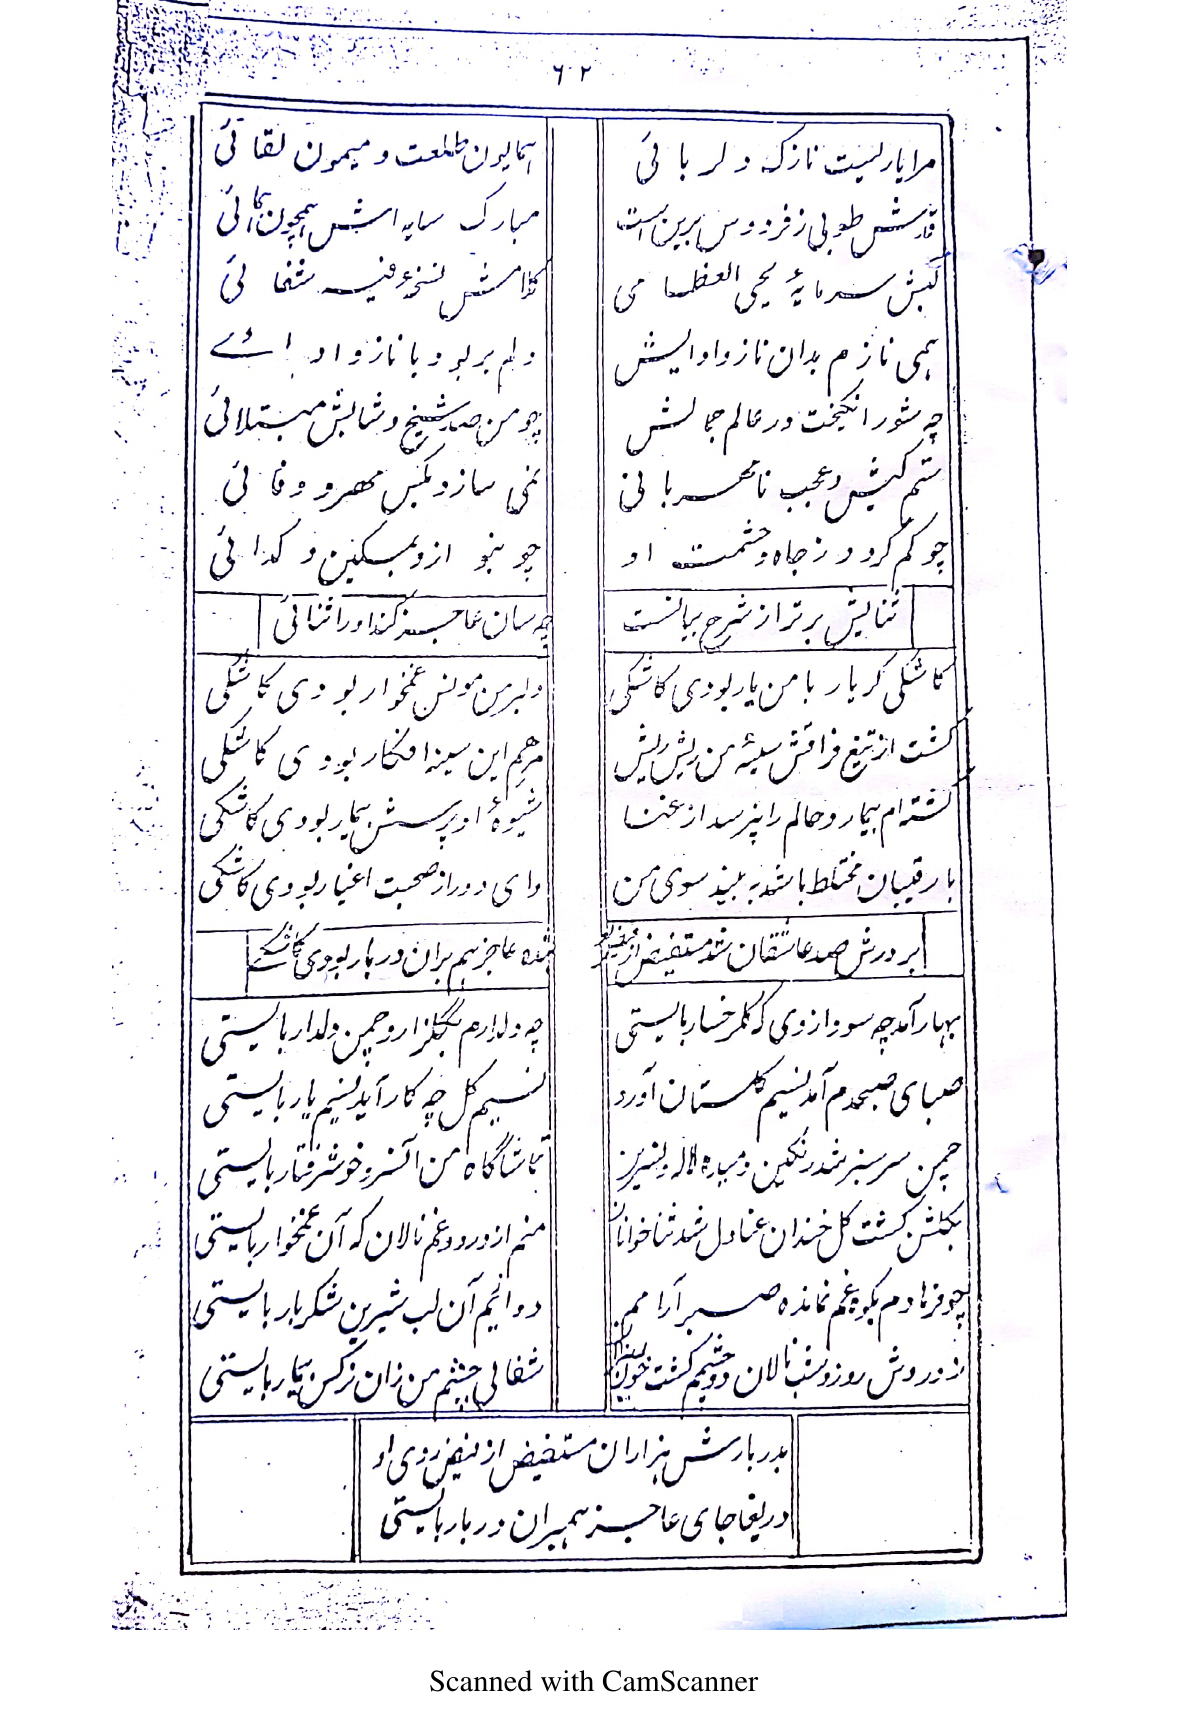 ۶۲
مرا یاریست نازک دلربائی
همایون طلعت و میمون لقائی
قدش طوبی ز فردوس برین است
مبارک سایه اش همچون همائی
لبش سرمایهٔ یحیی العظامی
کلامش نسخهٔ فیه شفائی
همی نازم بدان ناز و ادایش
دلم بربود با ناز و ادائے
چه شور انگیخت در عالم جمالش
چو من صد شیخ و شابش مبتلائی
ستم کیش و عجب نامهربانی
نمی سازد بکس مهر و وفائی
چو کم گردد ز جاه و حشمت او
چو بنوازد بمسکین و گدائی
ثنایش برتر از شرح بیانست
چه سان عاجز کند او را ثنائی
کاشکی گر یار با من یار بودی کاشکی
دلبر من مونس غمخوار بودی کاشکی
گشت از تیغ فراقش سینهٔ من ریش ریش
مرهم این سینه افکار بودی کاشکی
گشته ام بیمار و حالم را نپرسد از عنا
شیوهٔ او پرسش بیمار بودی کاشکی
با رقیبان مختلط باشد نه بیند سوی من
وای دور از صحبت اغیار بودی کاشکی
بر درش صد عاشقان شد مستفیض از
بنده عاجز هم بران دربار بودی کاشکے
بهار آمد چه سود از وی که گلرخسار بایستی
چه دلدارم بگلزار و چمن دلدار بایستی
صبای صبحدم آمد نسیم گلستان آورد
نسیم گل چه کار آید نسیم یار بایستی
چمن سرسبز شد رنگین دمیده لاله و نسرین
تماشاگاه من آنسرو خوشرفتار بایستی
بگلشن گشت گل خندان عنادل شد ثناخوانان
منم از درد و غم نالان که آن غمخوار بایستی
چو فرهادم بکوه غم نمانده صبر آرامم
دوائیم آن لب شیرین شکربار بایستی
ز دردش روز و شب نالان دو چشمم گشت خون
شفائی چشم من زان نرگس بیمار بایستی
بدربارش هزاران مستفیض از فیض روی او
دریغا جای عاجز هم بران دربار بایستی
Scanned with CamScanner